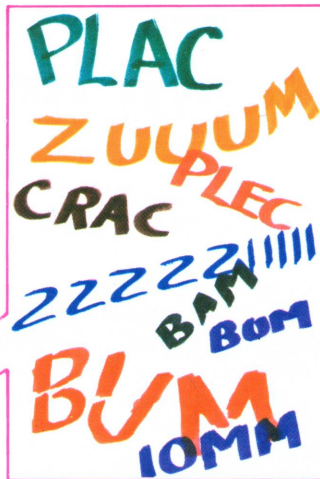 PLAC
ZUUUM
PLEC
CRAC
ZZZZZ!!!!!
BAM
BOM
BUM
IOMM